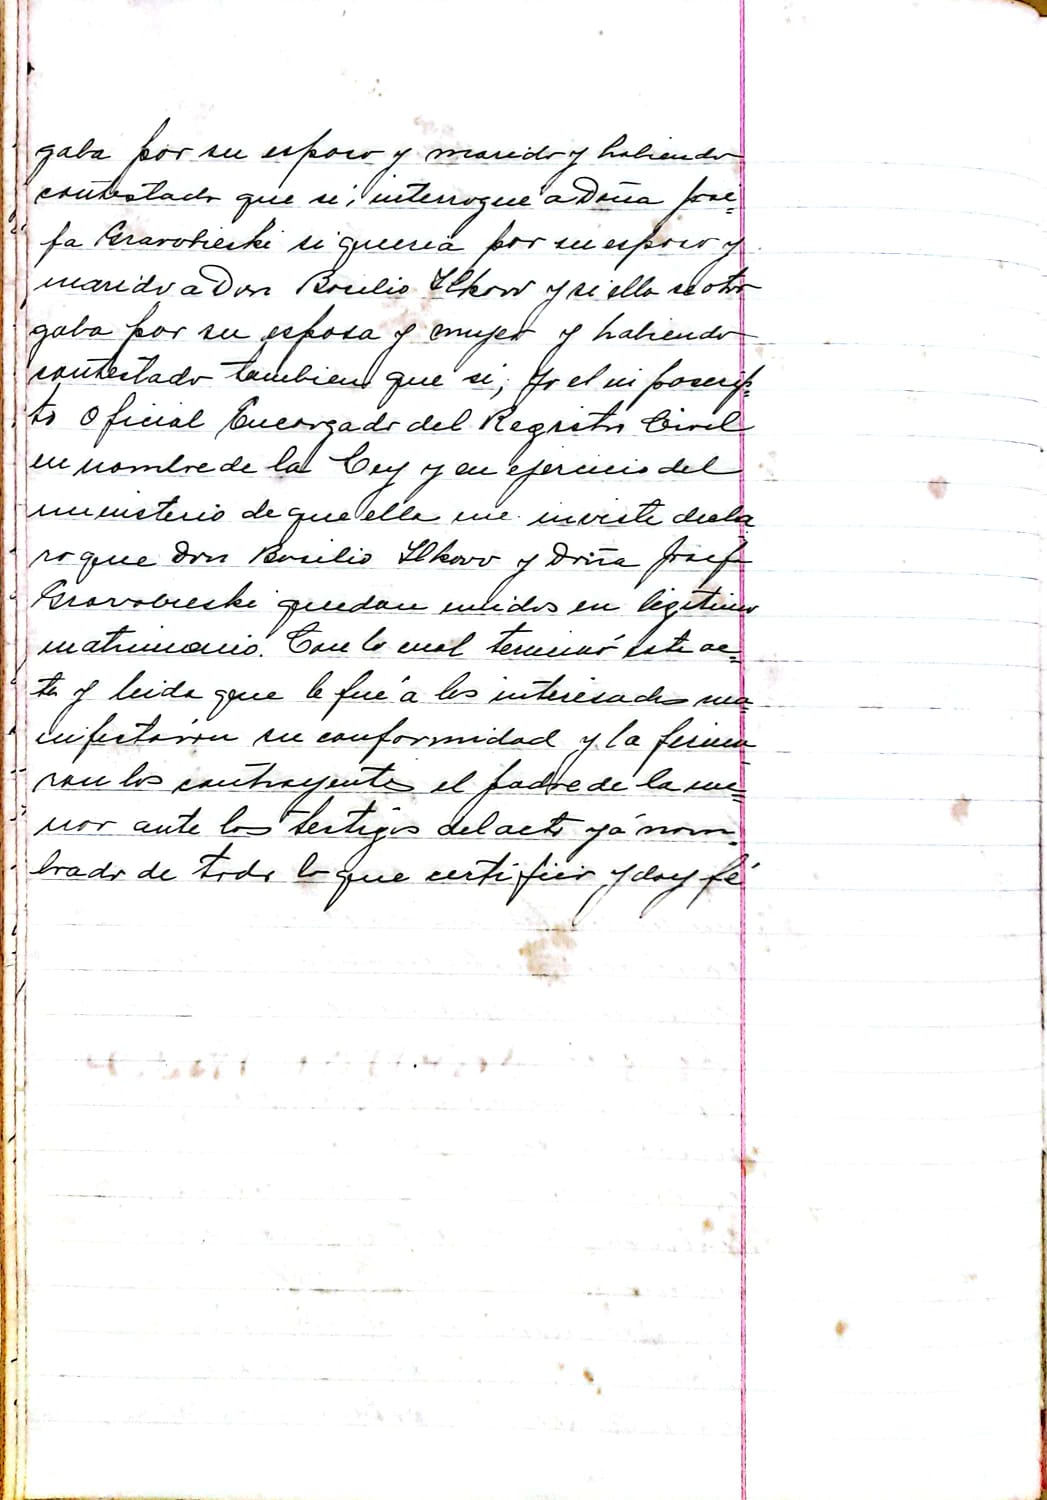 gaba por su esposo y marido y habiendo
contestado que si, interrogue a Doña Jose-
fa Gravobieski si queria por su esposo y
marido a Don Basilio Ilkow y si ella se otor
gaba por su esposa y mujer y habiendo
contestado tambien que si, Yo el infascrip-
to Oficial Encargado del Registro Civil
en nombre de la Ley y en ejercicio del
ministerio de que ella me inviste decla
ro que Don Basilio Ilkow y Doña Josefa
Gravobieski quedan unidos en legitimo
matrimonio. Con lo cual terminó este ac-
ta y leida que le fué a los interesados ma-
nifestarón su conformidad y la firma
ron los contrayentes el padre de la me-
nor ante los testigos del acto yá nom-
brado de todo lo que certifico y doy fé